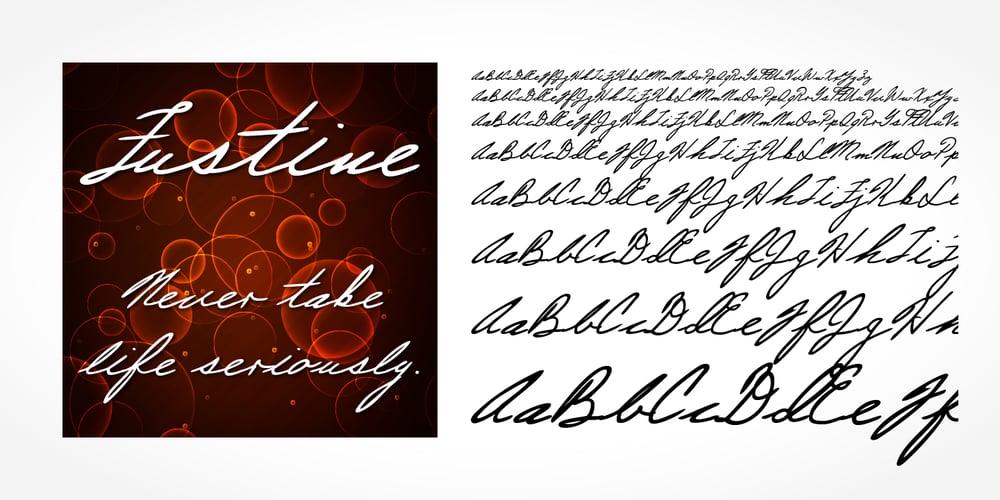 Justine
Never take
life seriously.
AaBbCcDdEeFfGgHhIiJjKkLlMmNnOoPpQqRrSsTtUuVvWwXxYyZz
AaBbCcDdEeFfGgHhIiJjKkLlMmNnOoPpQqRrSsTtUuVvWwXxYy
AaBbCcDdEeFfGgHhIiJjKkLlMmNnOoPpQqRrSsTtUuV
AaBbCcDdEeFfGgHhIiJjKkLlMmNnOoPp
AaBbCcDdEeFfGgHhIiJjKkLl
AaBbCcDdEeFfGgHhIiJ
AaBbCcDdEeFfGgHh
AaBbCcDdEeFf